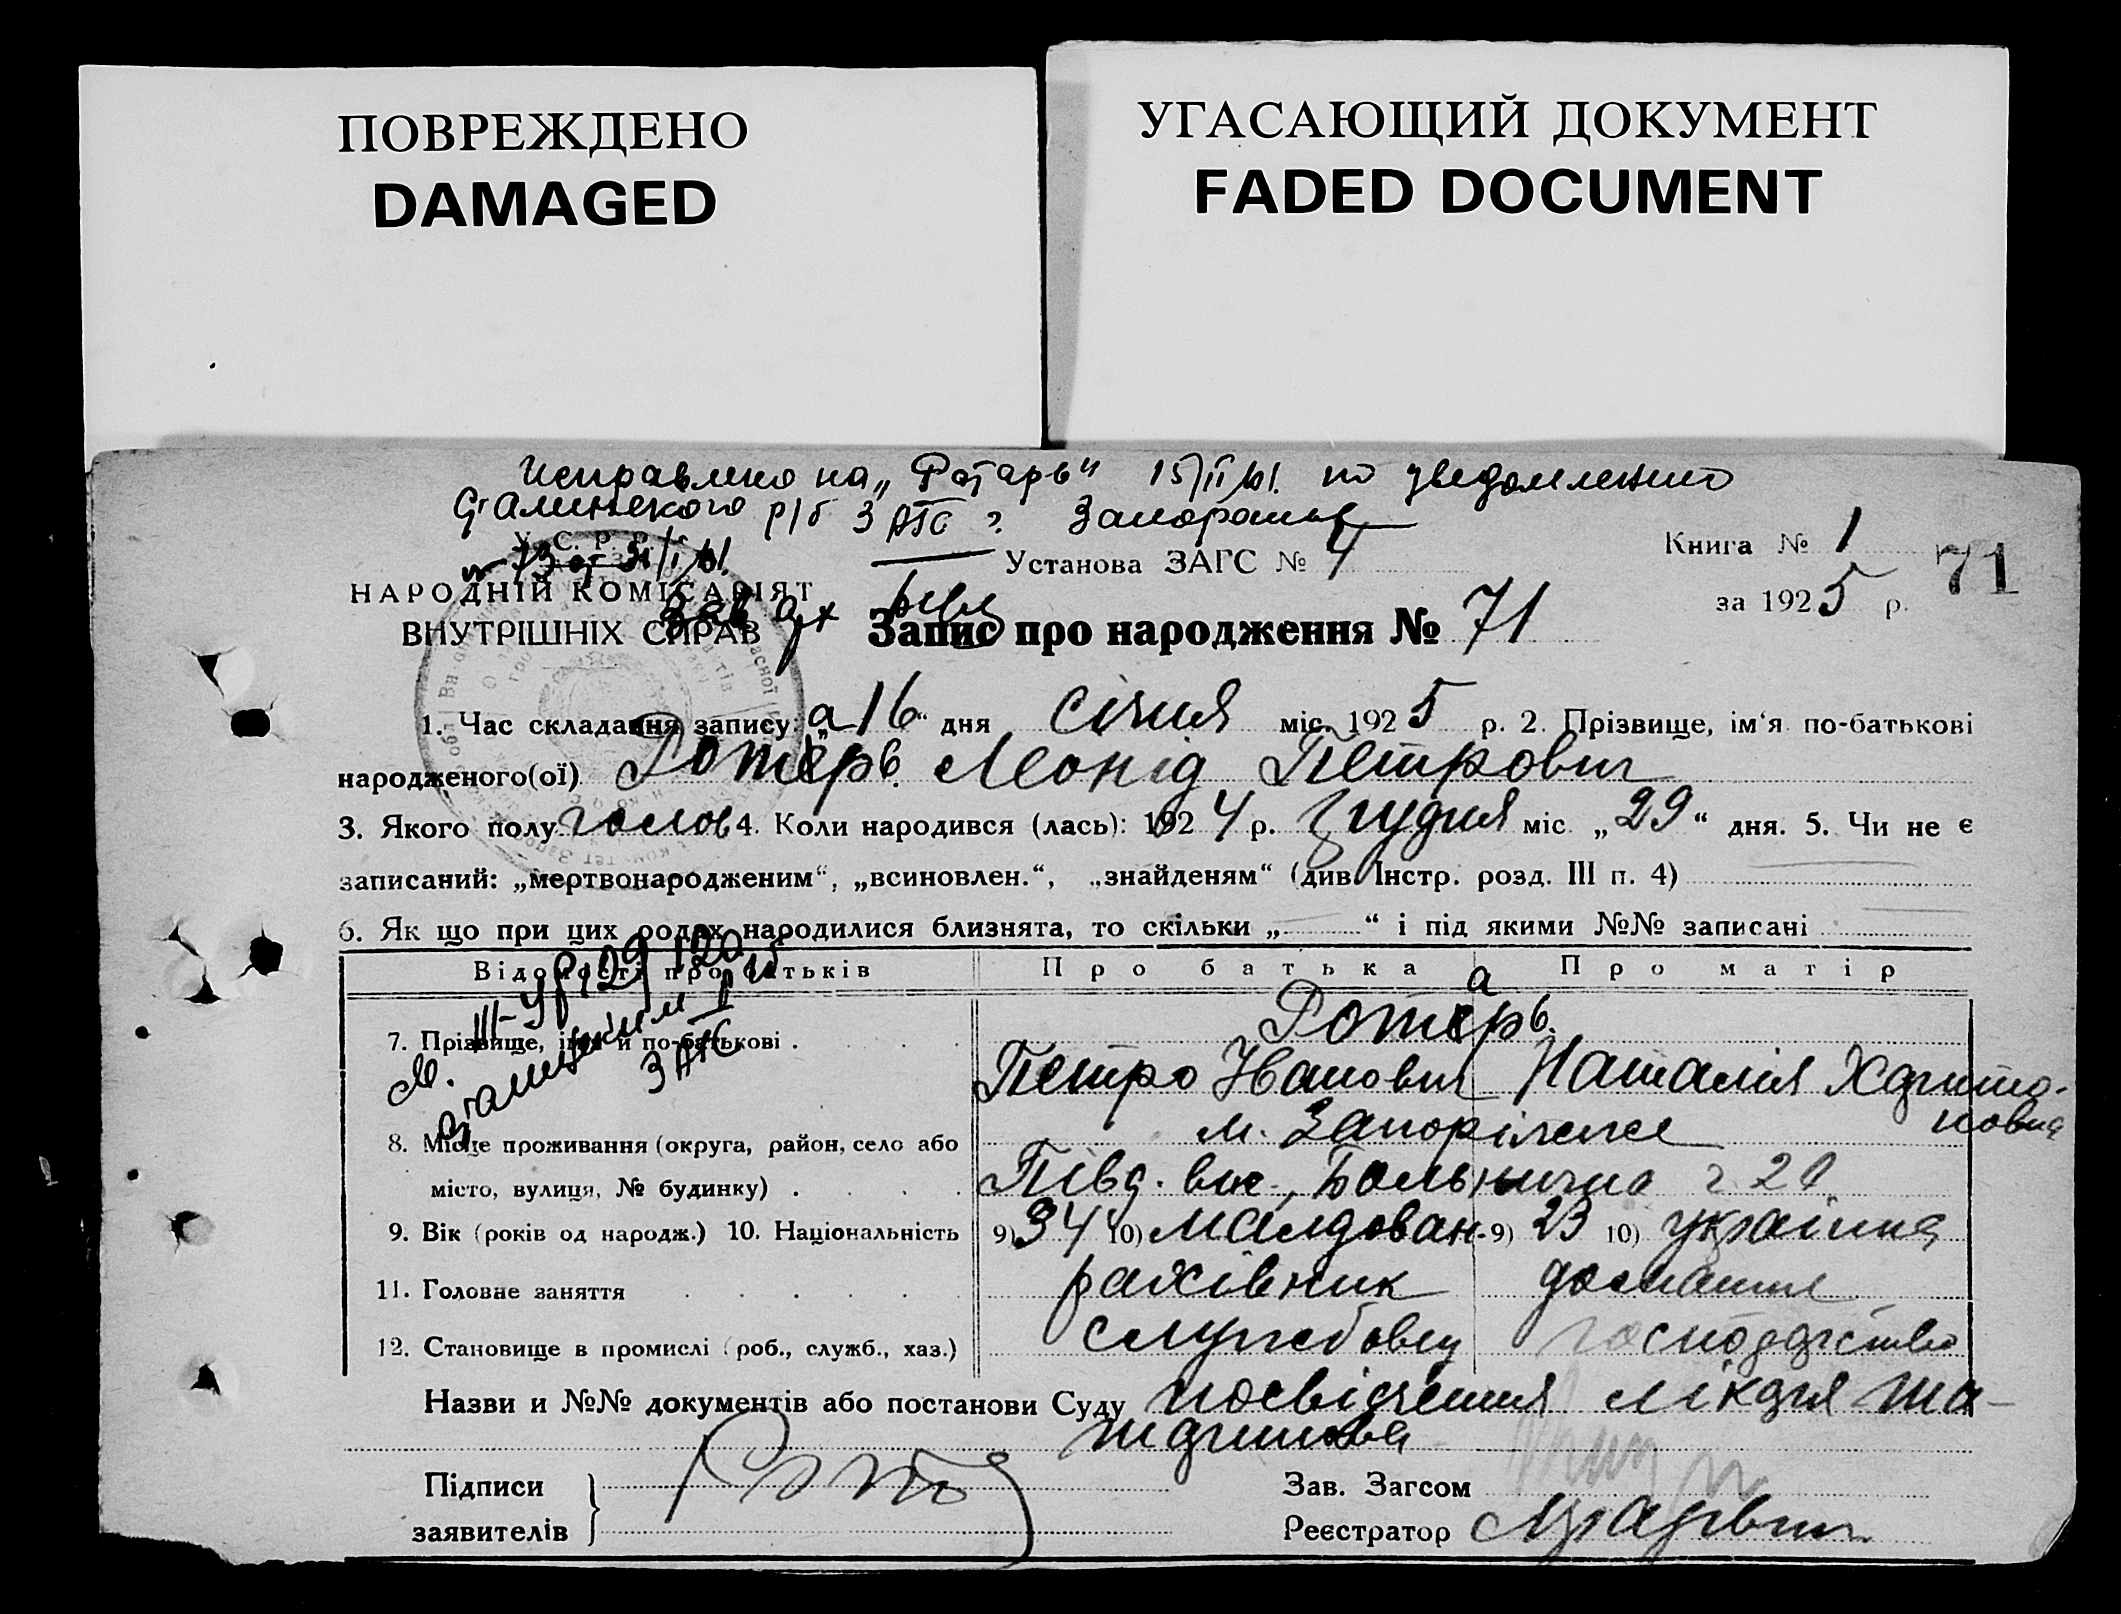 ПОВРЕЖДЕНО
DAMAGED
УГАСАЮЩИЙ ДОКУМЕНТ
FADED DOCUMENT
Исправлено на „Ротарь“ 15/II 61. по уведомлению
Сталинского р/б ЗАГС г. Запорожье
У. С. Р. Р.
№ 73 от 31/I 61.
Установа ЗАГС № 4
Книга № 1
71
НАРОДНІЙ КОМІСАРІЯТ
ВНУТРІШНІХ СПРАВ
за 1925 р.
Запис про народження № 71
1. Час складання запису: „16“ дня січня міс. 1925 р. 2. Прізвище, ім‘я по-батькові
народженого(ої) Ротарь Леонід Петрович
3. Якого полу чолов 4. Коли народився (лась): 1924 р. грудня міс. „29“ дня. 5. Чи не є
записаний: „мертвонародженим“, „всиновлен.“, „знайденям“ (див. Інстр. розд. III п. 4)
6. Як що при цих родах народилися близнята, то скільки „ “ і під якими №№ записані
Відомості про батьків Про батька Про матір
7. Прізвище, імя й по-батькові Ротарь
Петро Іванович Наталія Харито-
новна
8. Місце проживання (округа, район, село або м. Запоріжжє
місто, вулиця, № будинку) Півд. вис., Больнична 21
9. Вік (років од народж.) 10. Національність 9) 34 10) молдован. 9) 23 10) українка
11. Головне заняття рахівник домашнє
12. Становище в промислі (роб., служб., хаз.) службовець господарство
Назви и №№ документів або постанови Суду посвідчення лікаря
Підписи
заявителів
Зав. Загсом
Реєстратор